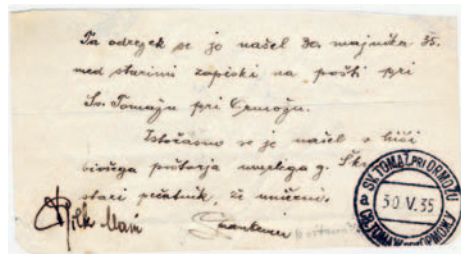 Ta odrezek se je našel 30. majnika 35.
med starimi zapiski na pošti pri
Sv. Tomažu pri Ormožu.
Istočasno se je našel v hiši
bivšega poštarja umrlega g.
stari pečatnik, že uničeni.
SV. TOMAŽ PRI ORMOŽU
a 30.V.35